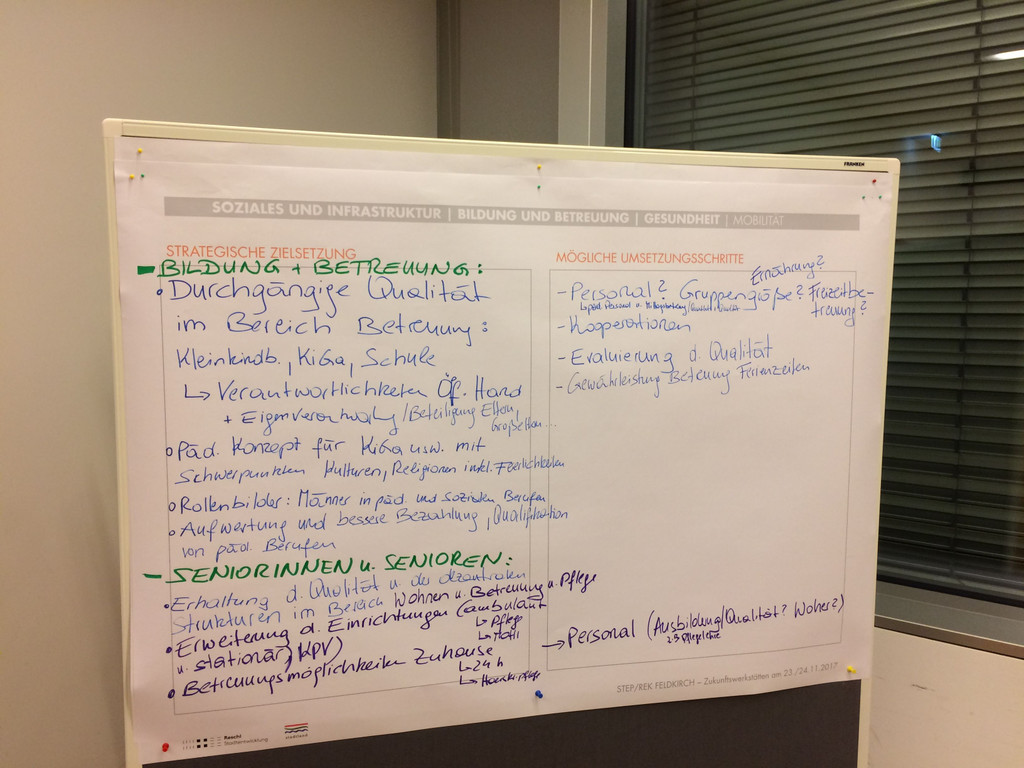 FRANKEN
SOZIALES UND INFRASTRUKTUR | BILDUNG UND BETREUUNG | GESUNDHEIT | MOBILITÄT
STRATEGISCHE ZIELSETZUNG
- BILDUNG + BETREUUNG:
• Durchgängige Qualität
im Bereich Betreuung:
Kleinkindb., KiGa, Schule
↳ Verantwortlichkeiten Öf. Hand
+ Eigenverantwortung/Beteiligung Eltern,
Großeltern...
• Päd. Konzept für KiGa usw. mit
Schwerpunkten Kulturen, Religionen inkl. Feierlichkeiten
• Rollenbilder: Männer in päd. und sozialen Berufen
• Aufwertung und bessere Bezahlung, Qualifikation
von päd. Berufen
- SENIORINNEN u. SENIOREN:
• Erhaltung d. Qualität u. der dezentralen
Strukturen im Bereich Wohnen u. Betreuung u. Pflege
• Erweiterung d. Einrichtungen (ambulant
u. stationär, KPV)
↳ Pflege
↳ MOHI
• Betreuungsmöglichkeiten Zuhause
↳ 24 h
↳ Hauskr.pflege
MÖGLICHE UMSETZUNGSSCHRITTE
Ernährung?
- Personal? Gruppengröße? Freizeitbe-
treuung?
- Kooperationen
- Evaluierung d. Qualität
- Gewährleistung Betreuung Ferienzeiten
→ Personal (Ausbildung/Qualität? Woher?)
z.B. Pflegelehre
STEP/REK FELDKIRCH – Zukunftswerkstätten am 23./24.11.2017
Stadtentwicklung
stadtland